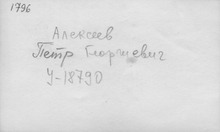 1796
Алексеев
Петр Георгиевич
У-18790